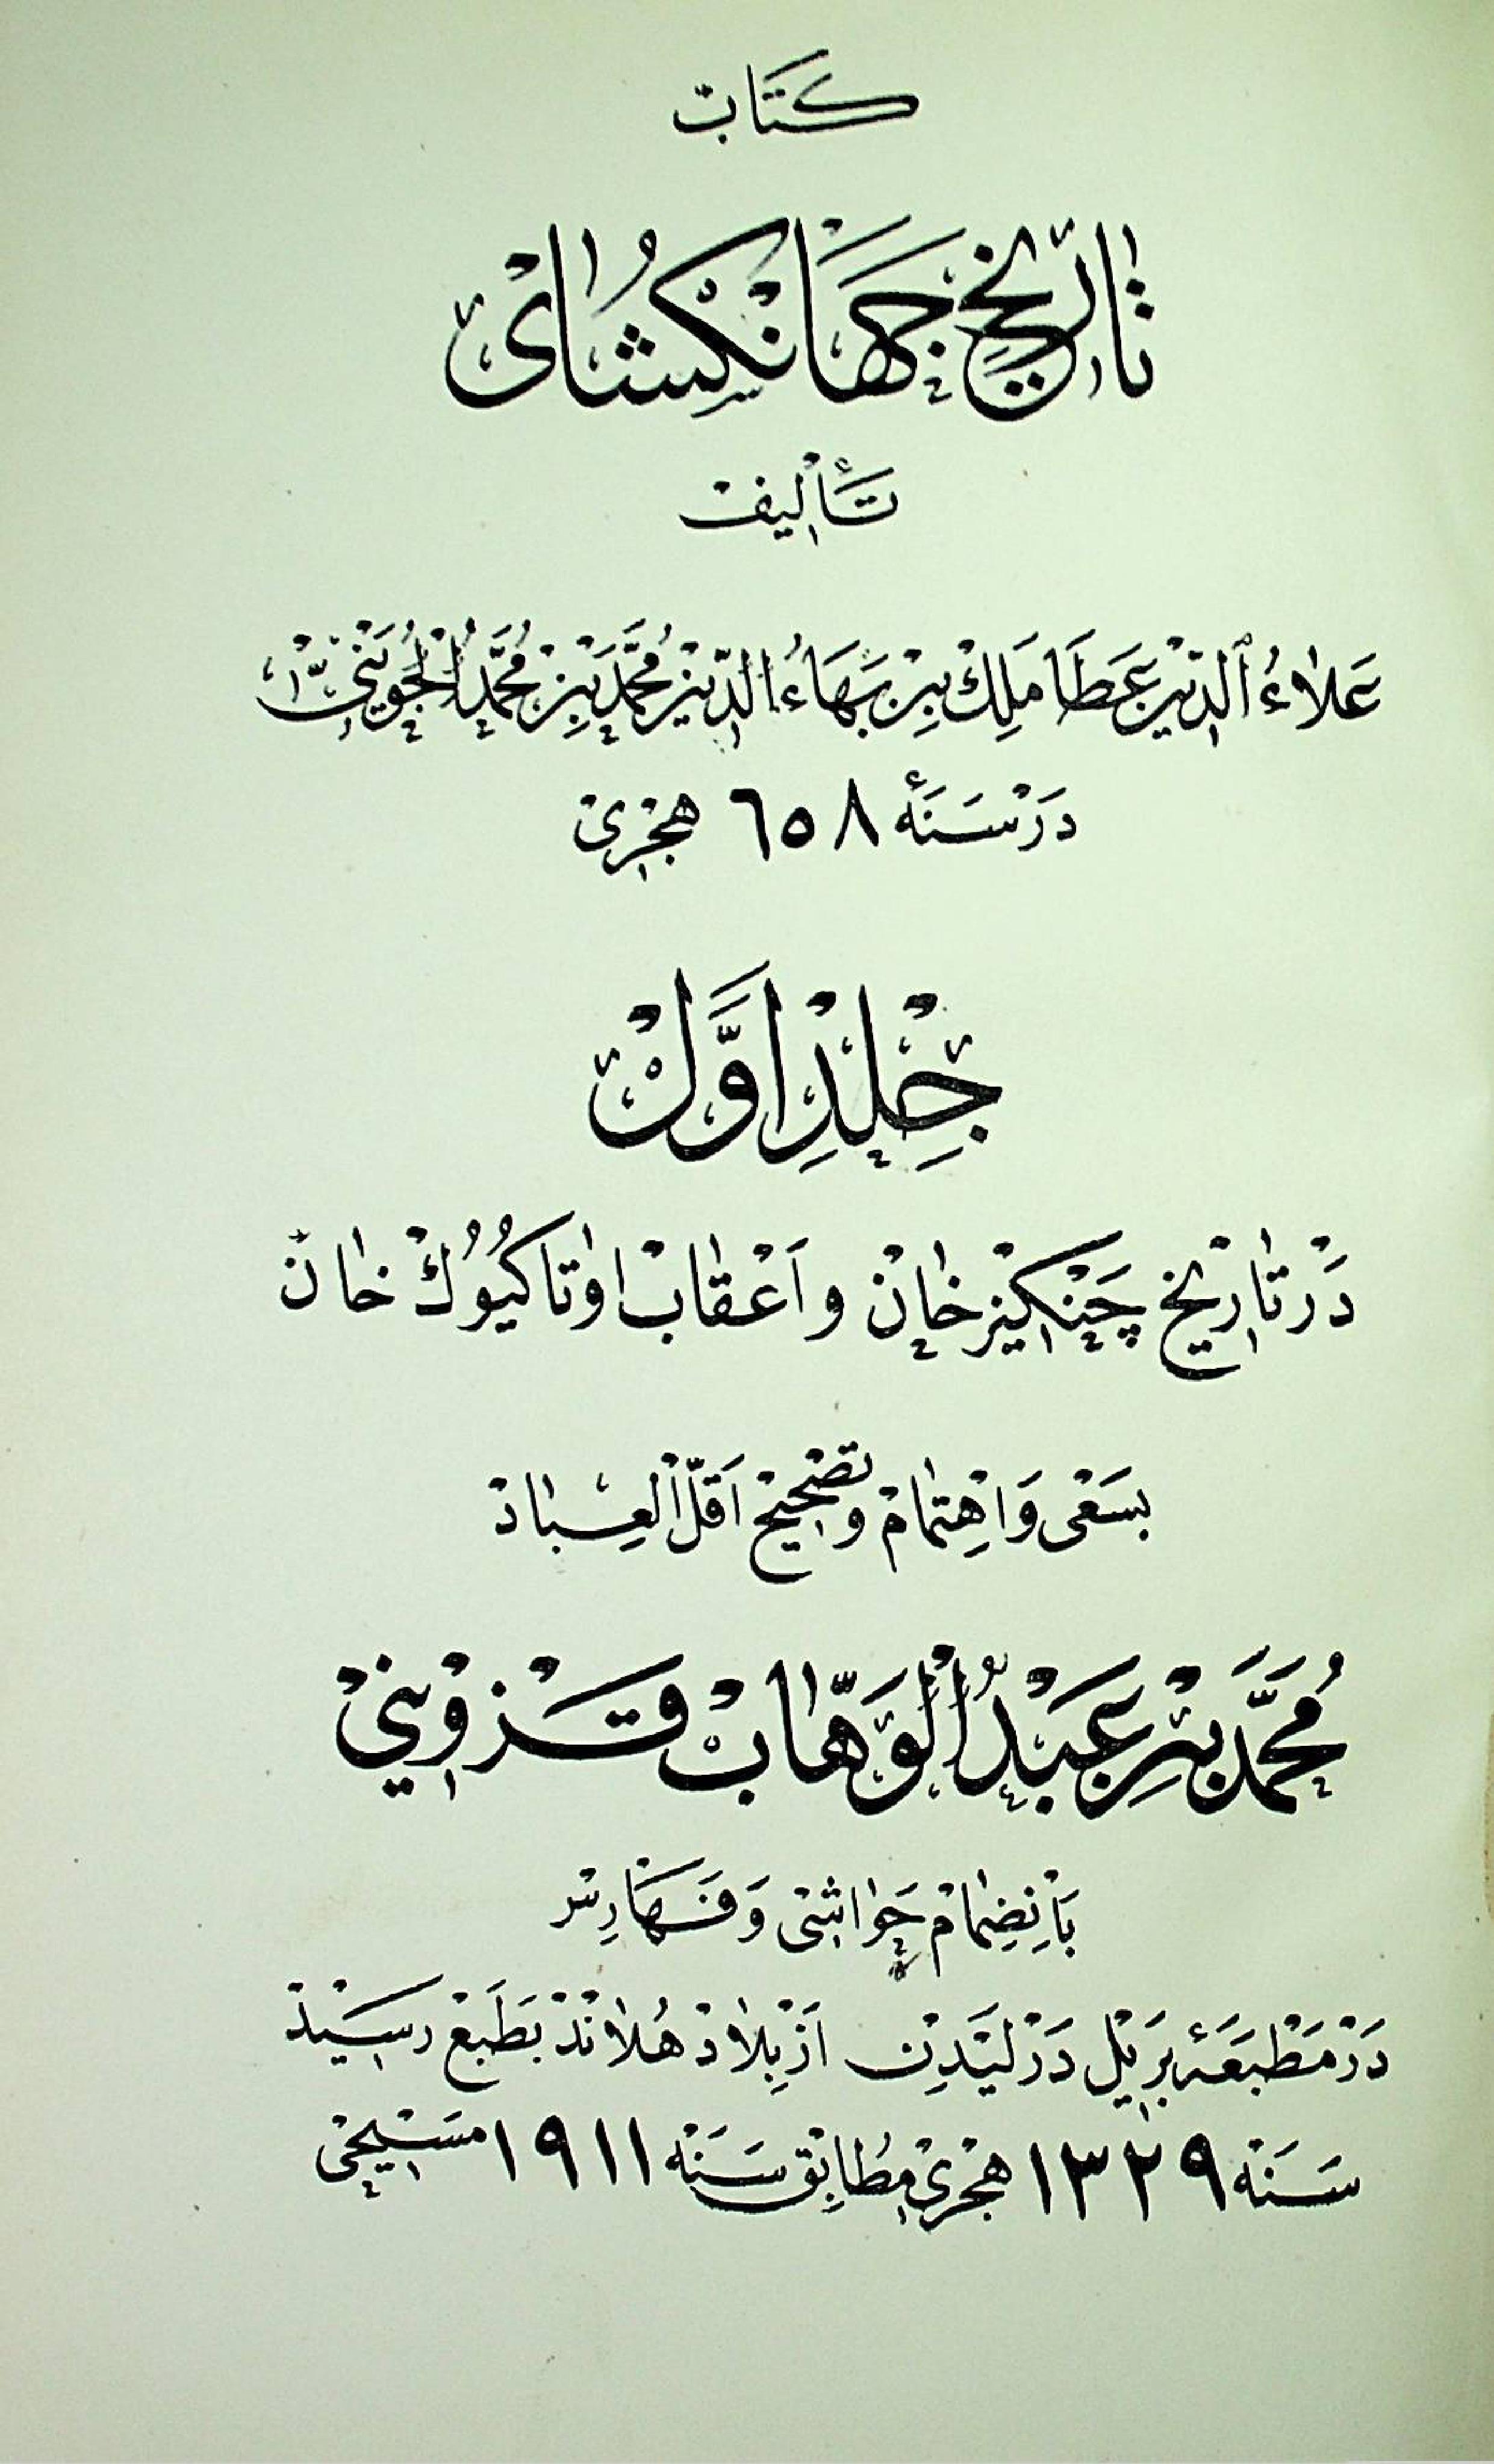 كتاب
تاريخ جهانكشاى
تأليف
علاء الدين عطا ملك بن بهاء الدين محمد بن محمد الجوينى
در سنهٔ ٦٥٨ هجرى
جلد اوّل
در تاريخ چنكيز خان و اعقاب او تا كيوك خان
بسعى و اهتمام و تصحيح اقلّ العباد
محمد بن عبد الوهّاب قزوينى
با نضمام حواشى و فهارس
در مطبعهٔ بريل در ليدن از بلاد هلاند بطبع رسيد
سنه ١٣٢٩ هجرى مطابق سنه ١٩١١ مسيحى